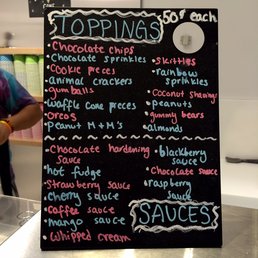 TOPPINGS .50¢ each
• Chocolate chips
• Chocolate sprinkles
• Cookie pieces
• animal crackers
• gum balls
• waffle cone pieces
• oreos
• Peanut M+M's
• Skittles
• rainbow
sprinkles
• Coconut shavings
• peanuts
• gummy bears
• almonds
• Chocolate hardening
sauce
• hot fudge
• Strawberry sauce
• cherry sauce
• coffee sauce
• mango sauce
• whipped cream
• blackberry
sauce
• Chocolate sauce
• raspberry
sauce
SAUCES